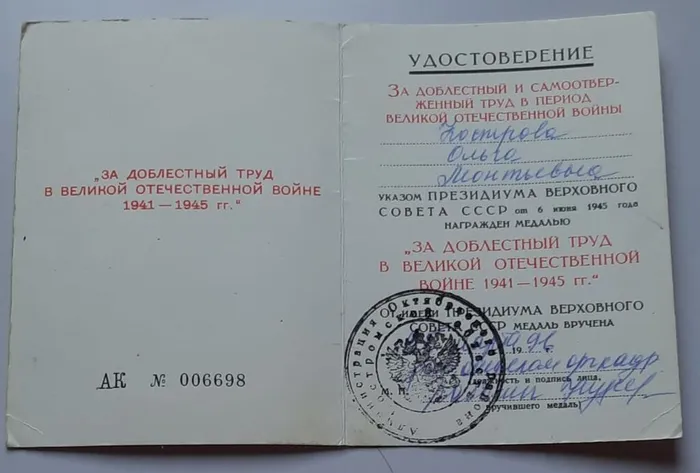 „ЗА ДОБЛЕСТНЫЙ ТРУД
В ВЕЛИКОЙ ОТЕЧЕСТВЕННОЙ ВОЙНЕ
1941 — 1945 гг.“
АК № 006698
УДОСТОВЕРЕНИЕ
ЗА ДОБЛЕСТНЫЙ И САМООТВЕР-
ЖЕННЫЙ ТРУД В ПЕРИОД
ВЕЛИКОЙ ОТЕЧЕСТВЕННОЙ ВОЙНЫ
Кострова
Ольга
Леонтьевна
УКАЗОМ ПРЕЗИДИУМА ВЕРХОВНОГО
СОВЕТА СССР от 6 июня 1945 года
НАГРАЖДЕН МЕДАЛЬЮ
„ЗА ДОБЛЕСТНЫЙ ТРУД
В ВЕЛИКОЙ ОТЕЧЕСТВЕННОЙ
ВОЙНЕ 1941—1945 гг.“
ОТ ИМЕНИ ПРЕЗИДИУМА ВЕРХОВНОГО
СОВЕТА СССР МЕДАЛЬ ВРУЧЕНА
19 г.
М. П.
должность и подпись лица,
вручившего медаль)
Администрация Октябрьского района
Костромской области